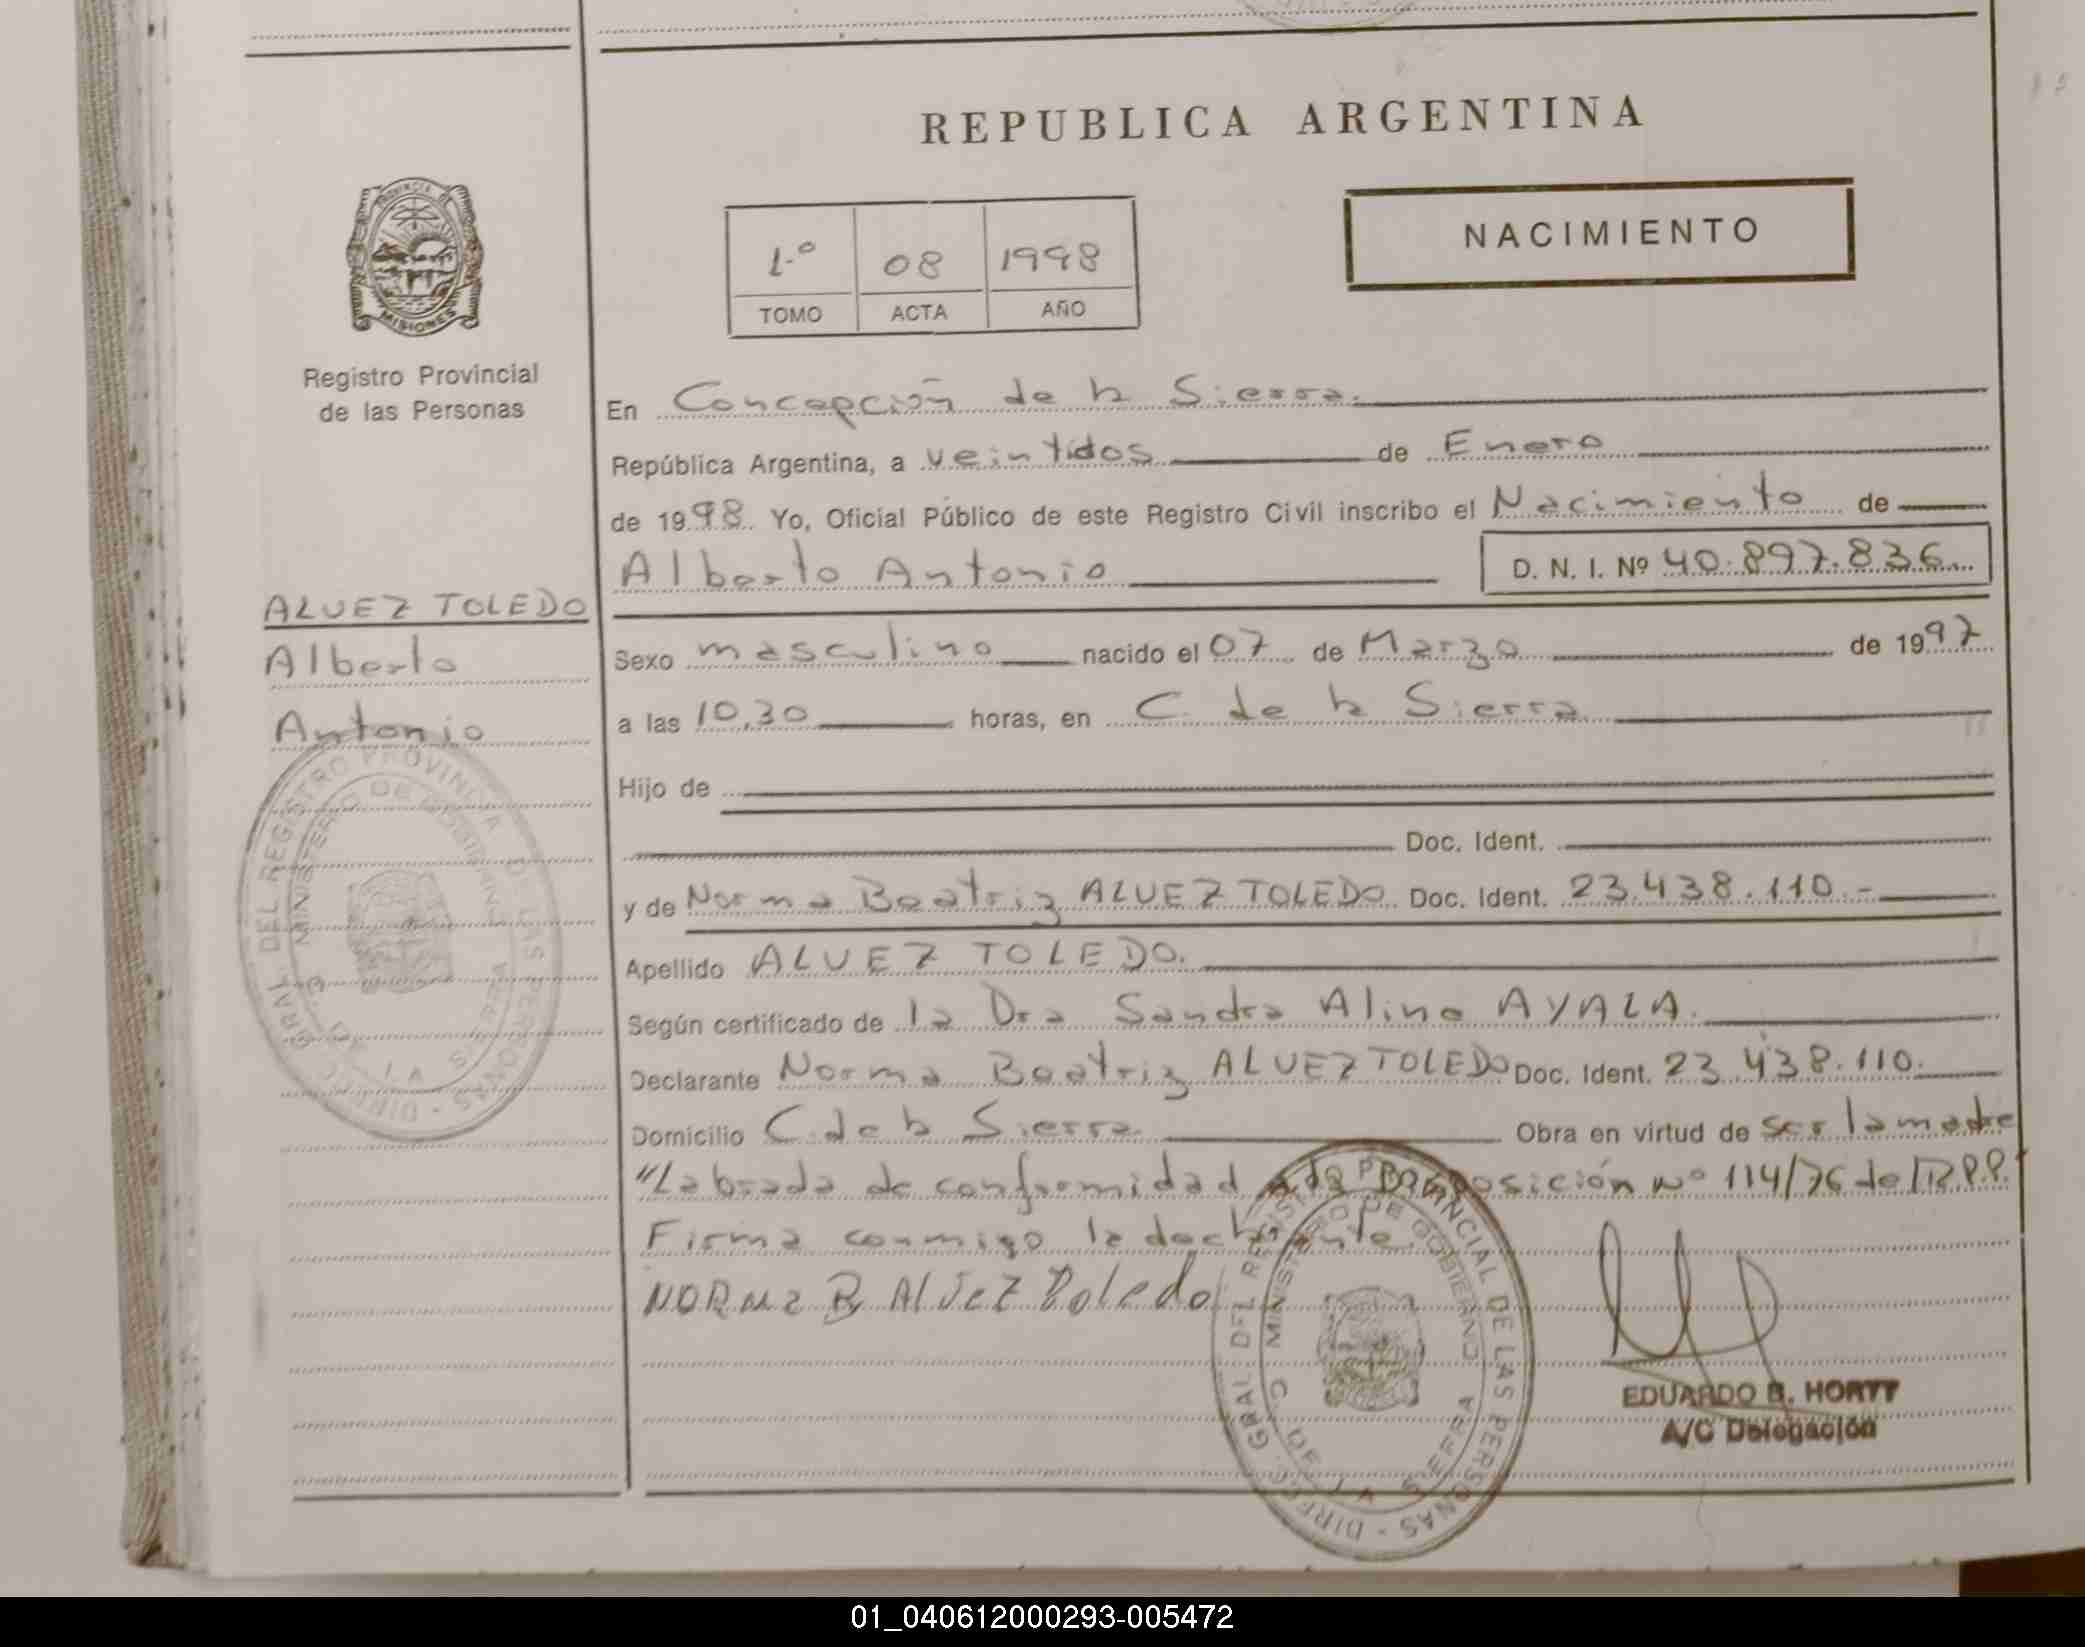 REPUBLICA ARGENTINA
NACIMIENTO
1.º 08 1998
TOMO ACTA AÑO
PROVINCIA DE
MISIONES
Registro Provincial
de las Personas
ALVEZ TOLEDO
Alberto
Antonio
DIREC. GRAL. DEL REGISTRO PROVINCIAL DE LAS PERSONAS
MINISTERIO DE GOBIERNO
C. DE LA SIERRA
En Concepción de la Sierra.
República Argentina, a veintidos de Enero
de 1998 Yo, Oficial Público de este Registro Civil inscribo el Nacimiento de
Alberto Antonio D. N. I. Nº 40.897.836
Sexo masculino nacido el 07 de Marzo de 1997
a las 10,30 horas, en C. de la Sierra
Hijo de
Doc. Ident.
y de Norma Beatriz ALVEZ TOLEDO Doc. Ident. 23.438.110.-
Apellido ALVEZ TOLEDO.
Según certificado de la Dra Sandra Alina AYALA.
Declarante Norma Beatriz ALVEZ TOLEDO Doc. Ident. 23.438.110.
Domicilio C. de la Sierra Obra en virtud de ser la madre
"Labrada de conformidad a la Disposición nº 114/76 del R.P.P."
Firma conmigo la declarante.
NORMA B ALVEZ Toledo
DIREC. GRAL. DEL REGISTRO PROVINCIAL DE LAS PERSONAS
MINISTERIO DE GOBIERNO
C. DE LA SIERRA
EDUARDO B. HORTT
A/C Delegación
01_040612000293-005472